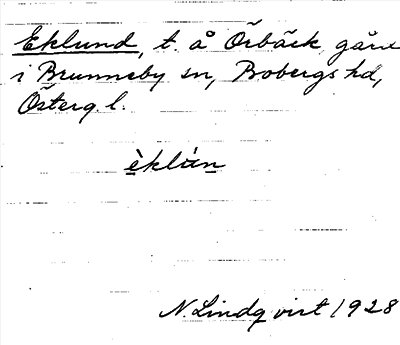 Eklund, t. å Örbäck, gård
i Brunneby sn, Bobergs hd,
Österg. l.
èklún
N. Lindqvist 1928